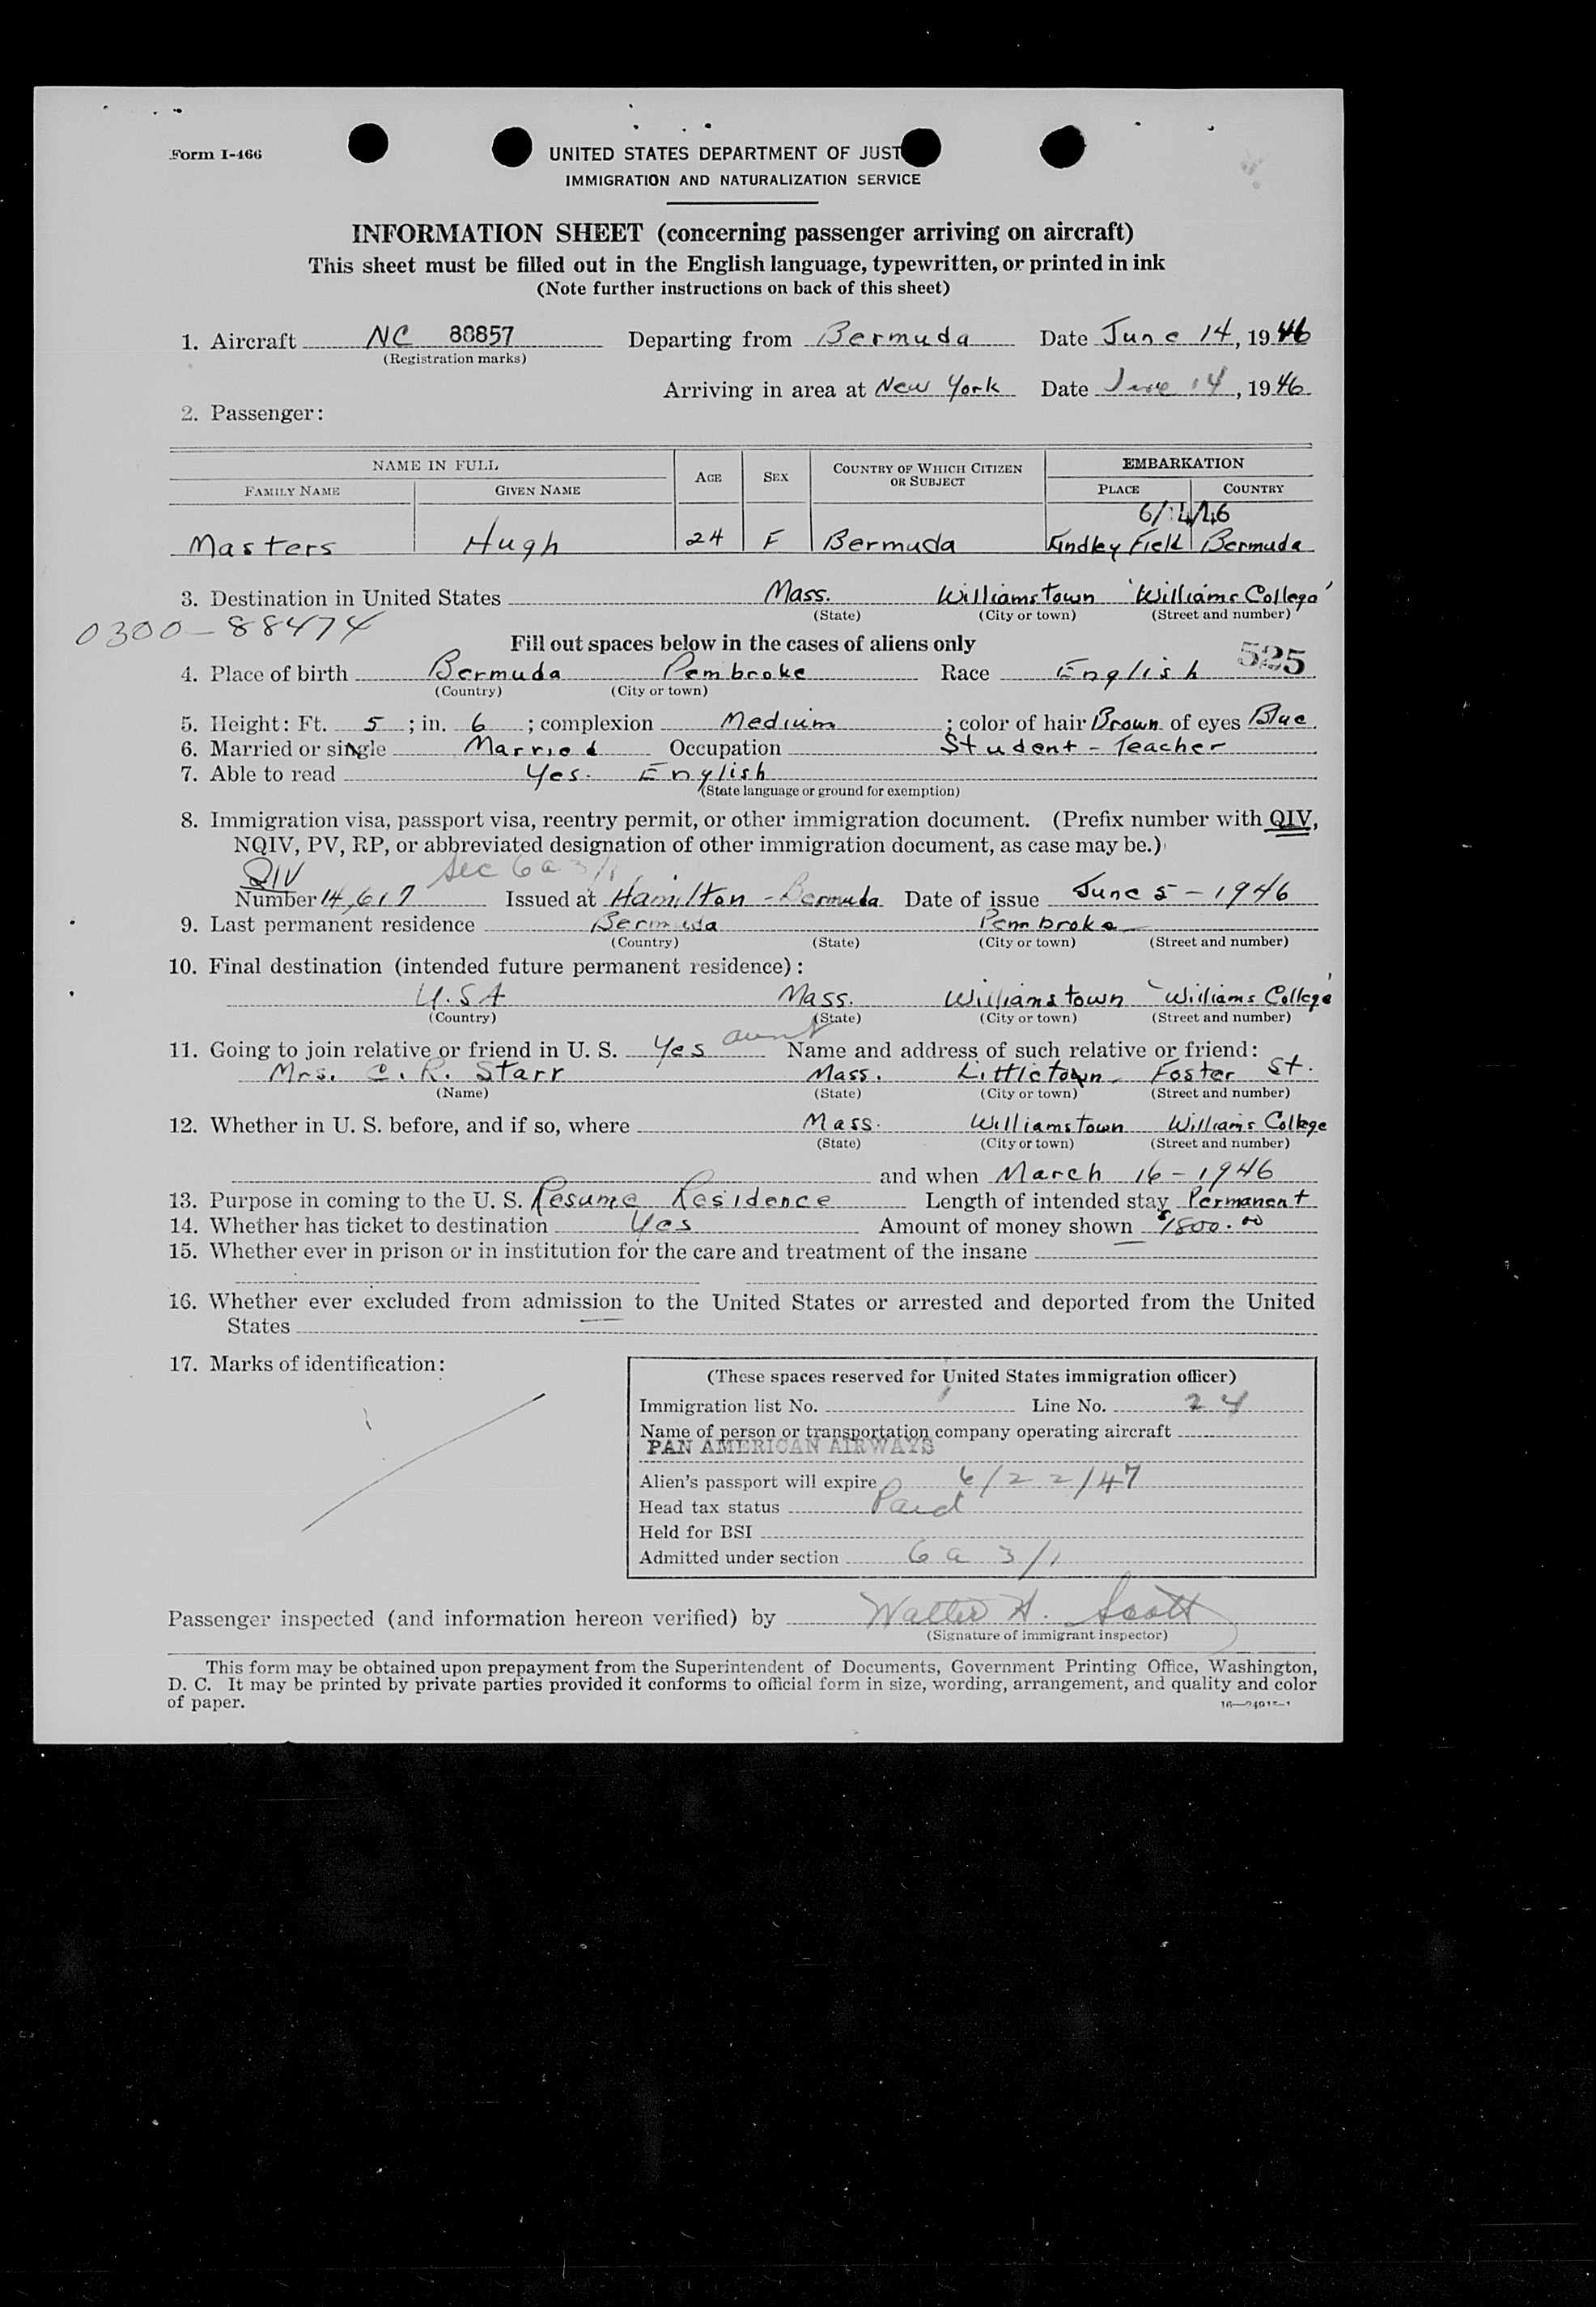 Form I-466
UNITED STATES DEPARTMENT OF JUST
IMMIGRATION AND NATURALIZATION SERVICE
INFORMATION SHEET (concerning passenger arriving on aircraft)
This sheet must be filled out in the English language, typewritten, or printed in ink
(Note further instructions on back of this sheet)
1. Aircraft NC 88857 Departing from Bermuda Date June 14, 1946
(Registration marks)
Arriving in area at New York Date June 14, 1946
2. Passenger:
NAME IN FULL AGE SEX COUNTRY OF WHICH CITIZEN OR SUBJECT EMBARKATION
FAMILY NAME GIVEN NAME PLACE COUNTRY
6/14/46
Masters Hugh 24 F Bermuda Kindley Field Bermuda
3. Destination in United States Mass. Williamstown 'Williams College'
(State) (City or town) (Street and number)
0300-88474
Fill out spaces below in the cases of aliens only
525
4. Place of birth Bermuda Pembroke Race English
(Country) (City or town)
5. Height: Ft. 5; in. 6; complexion Medium; color of hair Brown of eyes Blue
6. Married or single Married Occupation Student - Teacher
7. Able to read Yes. English
(State language or ground for exemption)
8. Immigration visa, passport visa, reentry permit, or other immigration document. (Prefix number with QIV,
NQIV, PV, RP, or abbreviated designation of other immigration document, as case may be.)
QIV Sec 6a 3/1
Number 14,617 Issued at Hamilton - Bermuda Date of issue June 5-1946
9. Last permanent residence Bermuda Pembroke
(Country) (State) (City or town) (Street and number)
10. Final destination (intended future permanent residence):
U.S.A Mass. Williamstown 'Williams College'
(Country) (State) (City or town) (Street and number)
11. Going to join relative or friend in U. S. Yes aunt Name and address of such relative or friend:
Mrs. C. R. Starr Mass. Littletown Foster St.
(Name) (State) (City or town) (Street and number)
12. Whether in U. S. before, and if so, where Mass. Williamstown Williams College
(State) (City or town) (Street and number)
and when March 16-1946
13. Purpose in coming to the U. S. Resume Residence Length of intended stay Permanent
14. Whether has ticket to destination Yes Amount of money shown $1800.00
15. Whether ever in prison or in institution for the care and treatment of the insane
16. Whether ever excluded from admission to the United States or arrested and deported from the United
States
17. Marks of identification:
(These spaces reserved for United States immigration officer)
Immigration list No. 1 Line No. 24
Name of person or transportation company operating aircraft
PAN AMERICAN AIRWAYS
Alien's passport will expire 6/22/47
Head tax status Paid
Held for BSI
Admitted under section 6 a 3/1
Passenger inspected (and information hereon verified) by Walter H. Scott
(Signature of immigrant inspector)
This form may be obtained upon prepayment from the Superintendent of Documents, Government Printing Office, Washington,
D. C. It may be printed by private parties provided it conforms to official form in size, wording, arrangement, and quality and color
of paper.